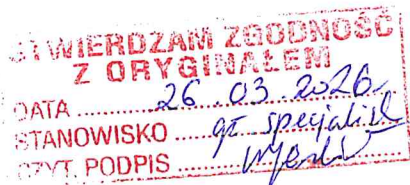 STWIERDZAM ZGODNOŚĆ
Z ORYGINAŁEM
DATA ........ 26.03.2026
STANOWISKO ........ gł. specjalist
CZYT. PODPIS ........